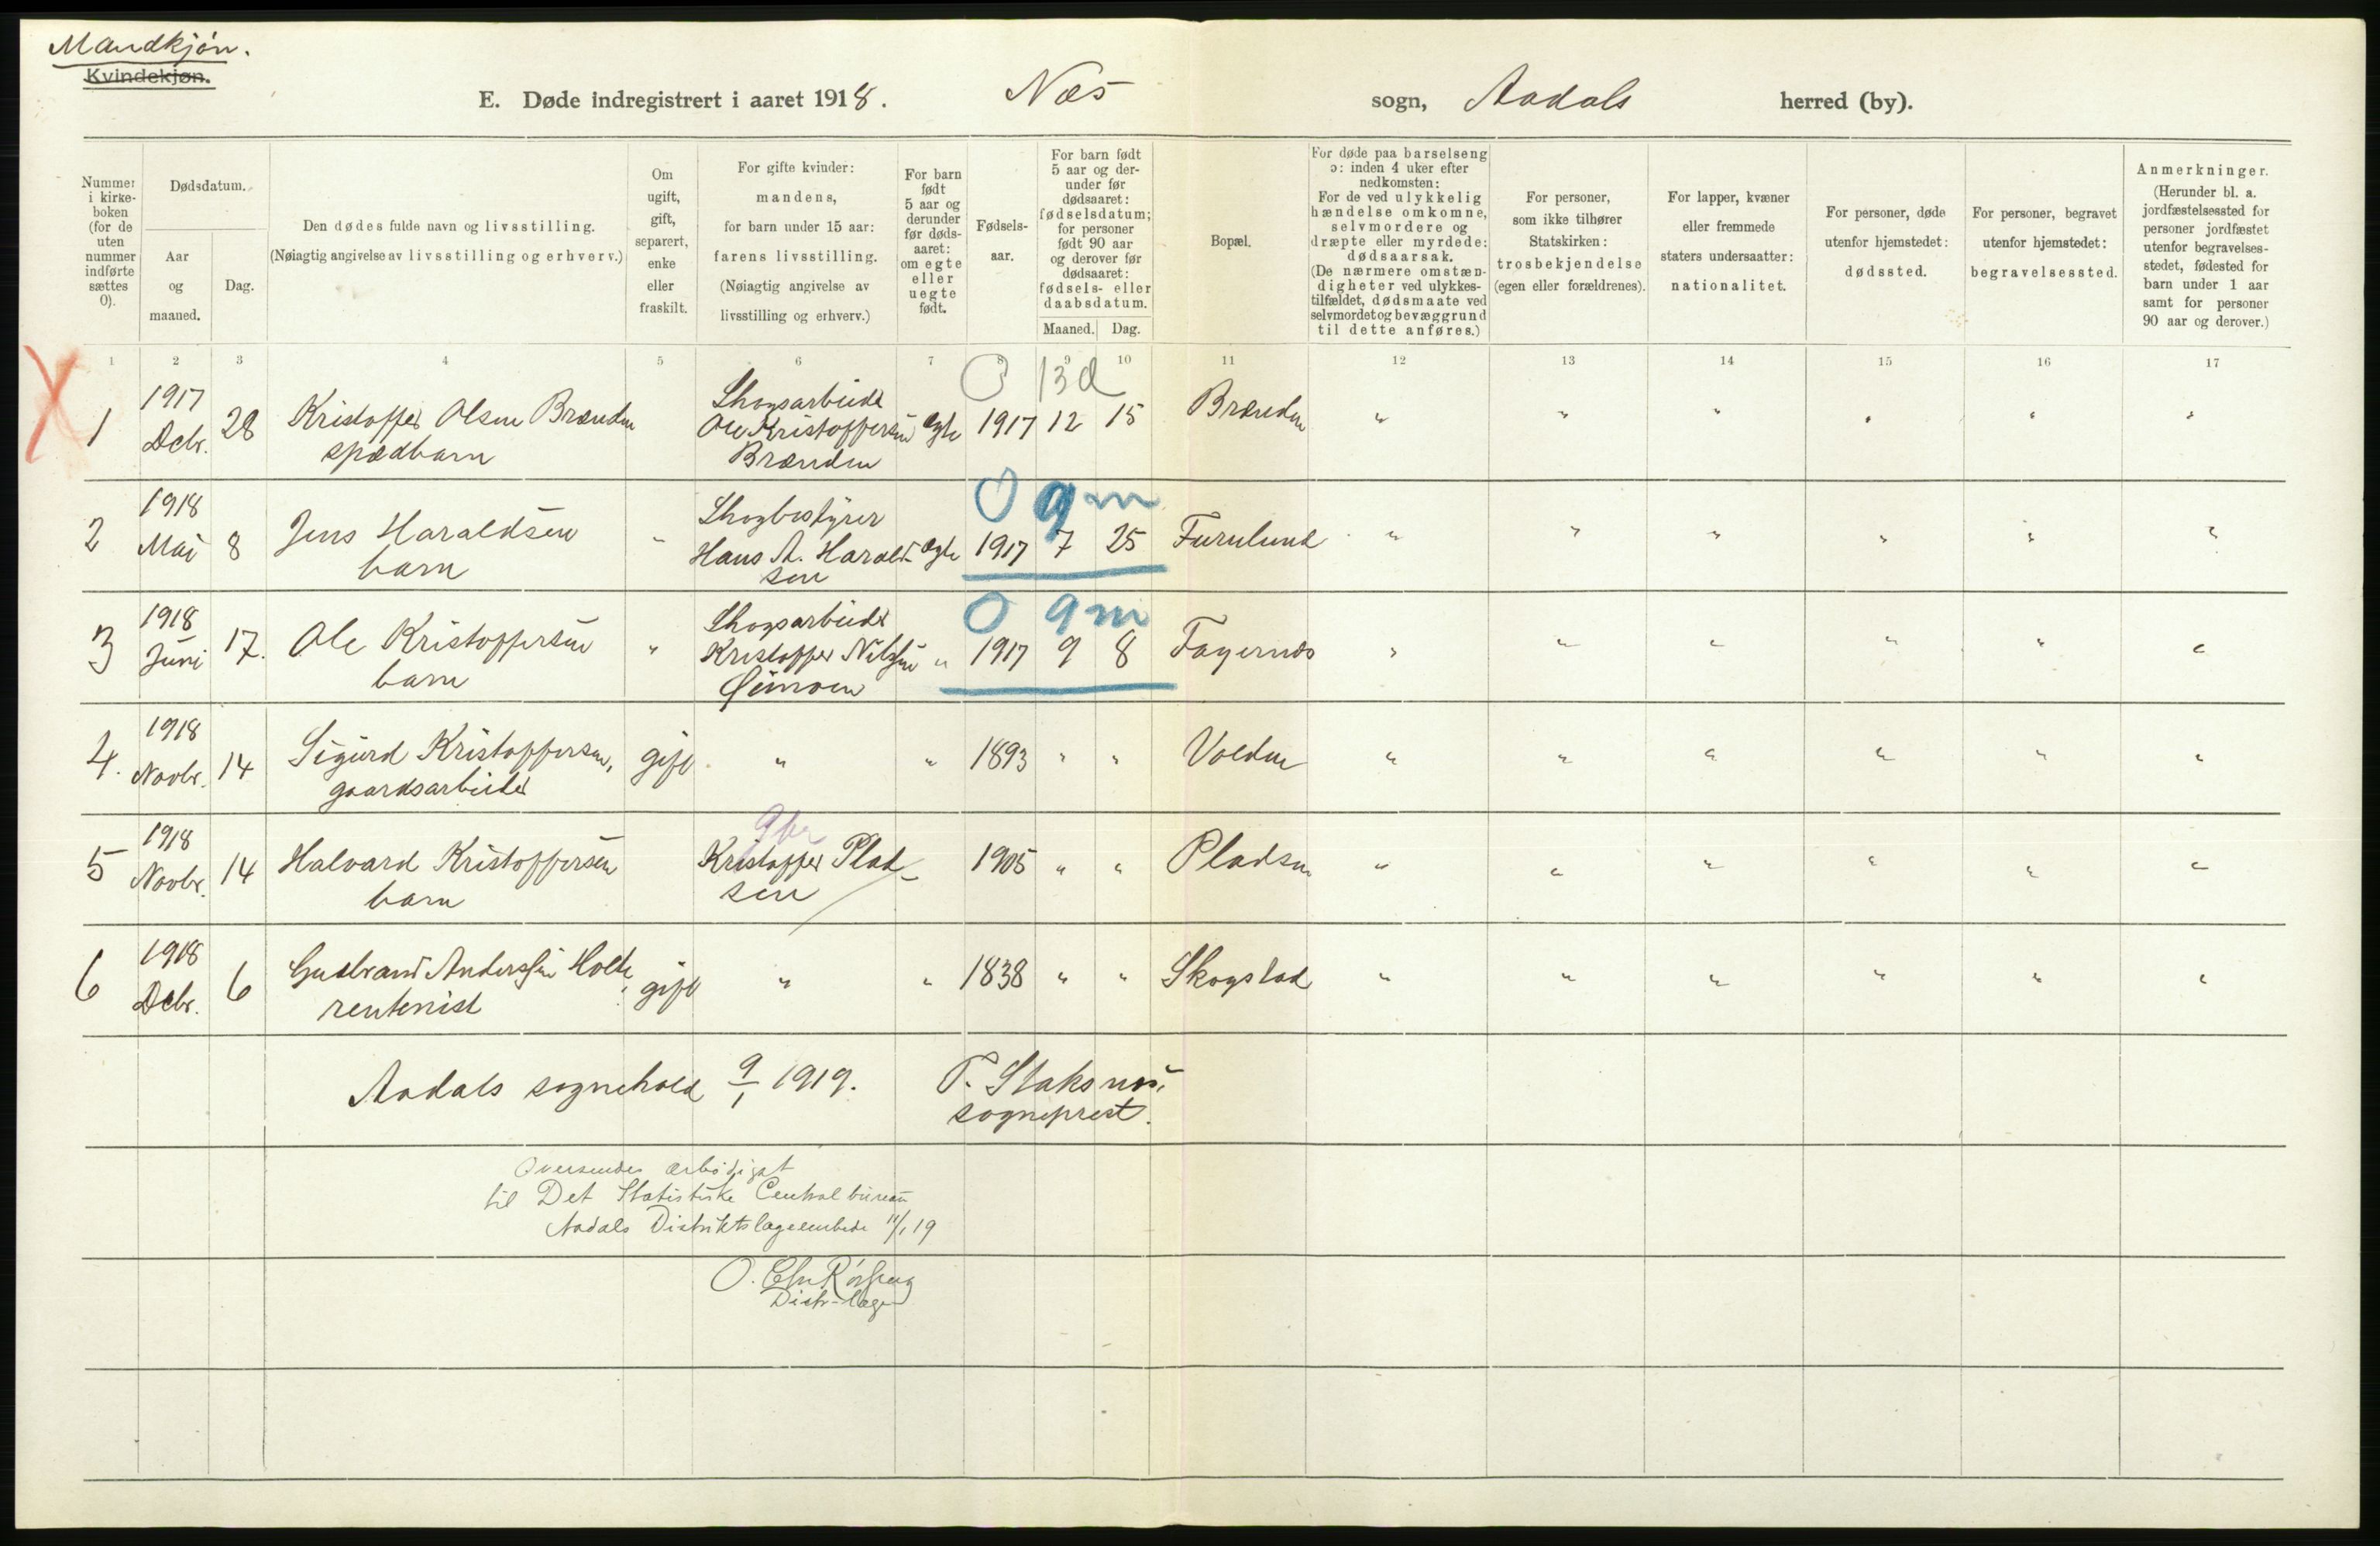 Mandkjøn.
Kvindekjøn.
E. Døde indregistrert i aaret 1918. Næs sogn, Aadals herred (by).
Nummer i kirkeboken (for de uten nummer indførte sættes 0).
Dødsdatum.
Aar og maaned.
Dag.
Den dødes fulde navn og livsstilling.
(Nøiagtig angivelse av livsstilling og erhverv.)
Om ugift, gift, separert, enke eller fraskilt.
For gifte kvinder: mandens, for barn under 15 aar: farens livsstilling.
(Nøiagtig angivelse av livsstilling og erhverv.)
For barn født 5 aar og derunder før dødsaaret: om egte eller uegte født.
Fødselsaar.
For barn født 5 aar og derunder før dødsaaret: fødselsdatum; for personer født 90 aar og derover før dødsaaret: fødsels- eller daabsdatum.
Maaned. Dag.
Bopæl.
For døde paa barselseng ɔ: inden 4 uker efter nedkomsten: For de ved ulykkelig hændelse omkomne, selvmordere og dræpte eller myrdede: dødsaarsak.
(De nærmere omstændigheter ved ulykkestilfældet, dødsmaate ved selvmordet og bevæggrund til dette anføres.)
For personer, som ikke tilhører Statskirken: trosbekjendelse (egen eller forældrenes).
For lapper, kvæner eller fremmede staters undersaatter: nationalitet.
For personer, døde utenfor hjemstedet: dødssted.
For personer, begravet utenfor hjemstedet: begravelsessted.
Anmerkninger.
(Herunder bl. a. jordfæstelsessted for personer jordfæstet utenfor begravelsesstedet, fødested for barn under 1 aar samt for personer 90 aar og derover.)
1 2 3 4 5 6 7 8 9 10 11 12 13 14 15 16 17
0 13 d
1 1917 Dcbr. 28 Kristoffer Olsen Brænden spædbarn Skogsarbeider Ole Kristoffersen Brænden egte 1917 12 15 Brænden " " " " " "
0 9 m
2 1918 Mai 8 Jens Haraldsen barn " Skogbestyrer Hans A. Haraldsen egte 1917 7 25 Furulund " " " " " "
0 9 m
3 1918 Juni 17. Ole Kristoffersen barn " Skogsarbeider Kristoffer Nilsen " 1917 9 8 Fagernæs " " " " " "
4. 1918 Novbr. 14 Sigurd Kristoffersen, gaardsarbeider gift " " 1893 " " Volden " " " " " "
5 1918 Novbr. 14 Halvard Kristoffersen barn Kristoffer Pladsen 1905 " " Pladsen " " " " " "
6 1918 Dcbr. 6 Gudbrand Anderssen Holte, rentenist gift " " 1838 " " Skogstad " " " " " "
Aadals sognekald 9/1 1919. P. Staksnæs,
sogneprest.
Oversendes ærbødigst
til Det Statistiske Centralbureau
Aadals Distriktslægeembede 11/1 19
Distr-læge